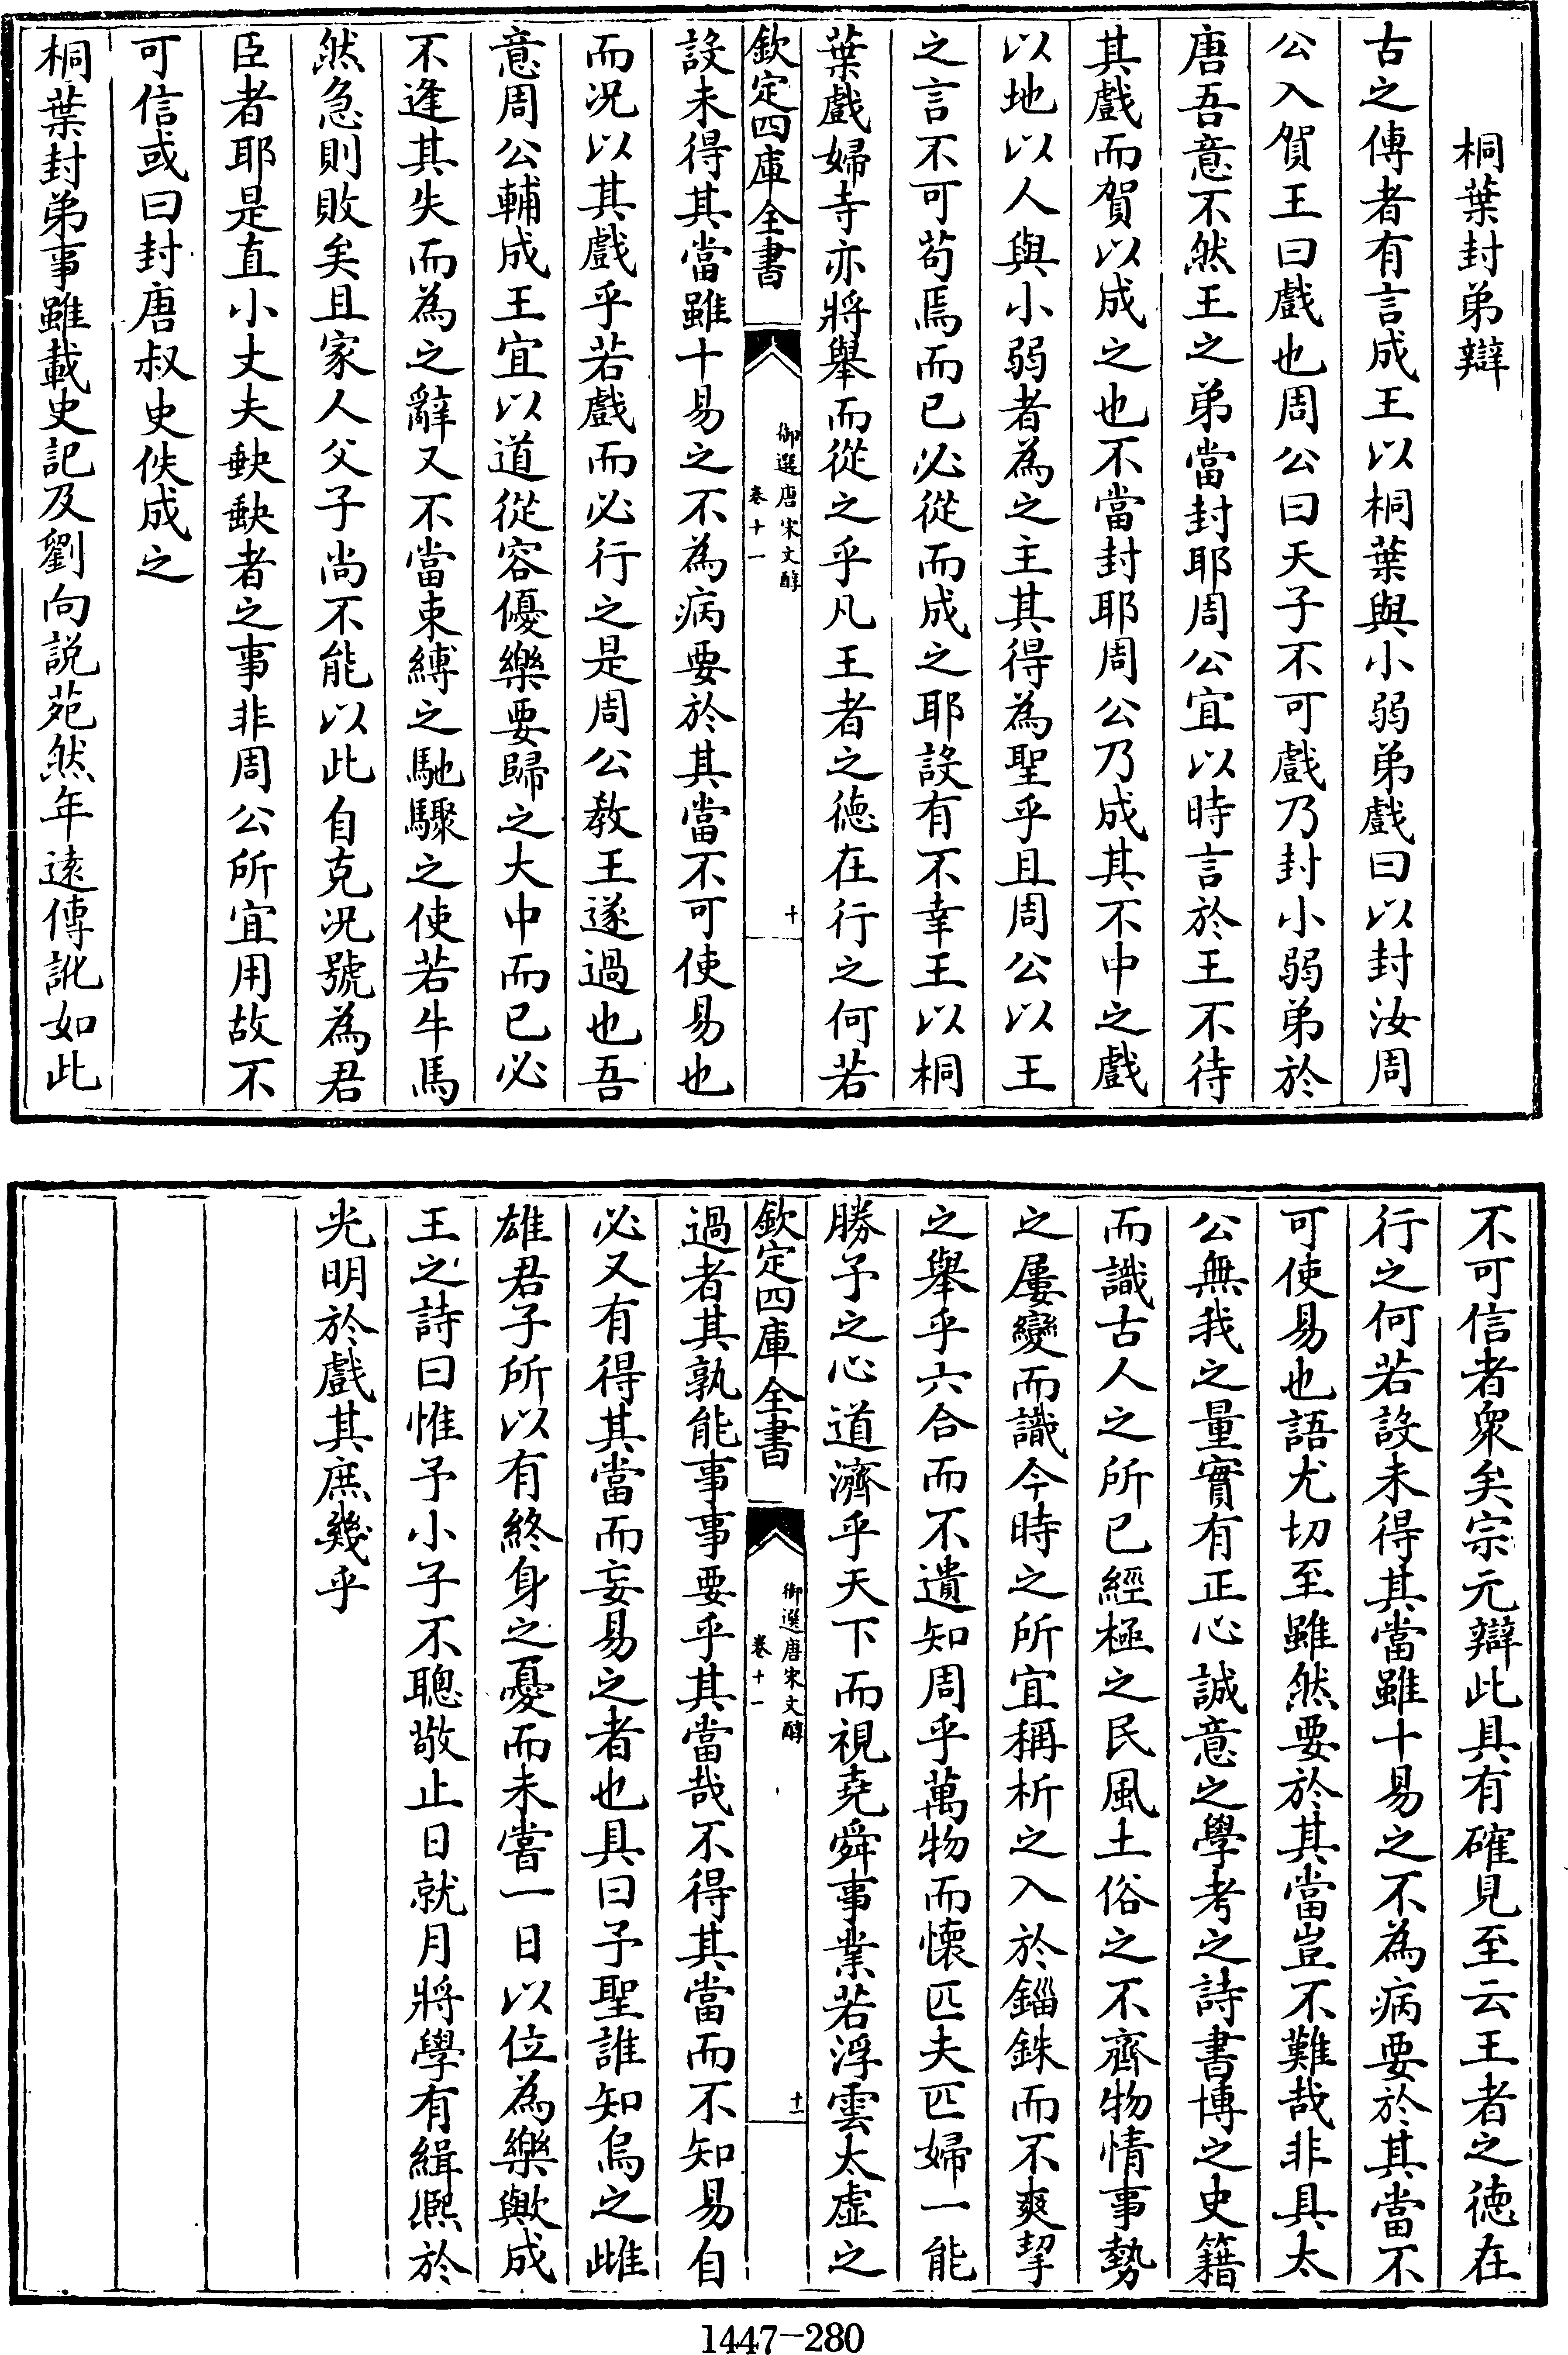 桐葉封弟辯
古之傳者有言成王以桐葉與小弱弟戲曰以封汝周
公入賀王曰戲也周公曰天子不可戲乃封小弱弟於
唐吾意不然王之弟當封耶周公宜以時言於王不待
其戲而賀以成之也不當封耶周公乃成其不中之戲
以地以人與小弱者為之主其得為聖乎且周公以王
之言不可苟焉而已必從而成之耶設有不幸王以桐
葉戲婦寺亦將舉而從之乎凡王者之德在行之何若
欽定四庫全書
御選唐宋文醇
卷十一
十
設未得其當雖十易之不為病要於其當不可使易也
而况以其戲乎若戲而必行之是周公教王遂過也吾
意周公輔成王宜以道從容優樂要歸之大中而已必
不逢其失而為之辭又不當束縛之馳驟之使若牛馬
然急則敗矣且家人父子尚不能以此自克况號為君
臣者耶是直小丈夫䡿䡿者之事非周公所宜用故不
可信或曰封唐叔史佚成之
桐葉封弟事雖載史記及劉向說苑然年遠傳訛如此
不可信者衆矣宗元辯此具有確見至云王者之德在
行之何若設未得其當雖十易之不為病要於其當不
可使易也語尤切至雖然要於其當豈不難哉非具太
公無我之量實有正心誠意之學考之詩書博之史籍
而識古人之所已經極之民風土俗之不齊物情事勢
之屢變而識今時之所宜稱析之入於錙銖而不爽挈
之舉乎六合而不遺知周乎萬物而懷匹夫匹婦一能
勝予之心道濟乎天下而視堯舜事業若浮雲太虛之
欽定四庫全書
御選唐宋文醇
卷十一
十一
過者其孰能事事要乎其當哉不得其當而不知易自
必又有得其當而妄易之者也具曰予聖誰知烏之雌
雄君子所以有終身之憂而未嘗一日以位為樂歟成
王之詩曰惟予小子不聰敬止日就月將學有緝熙於
光明於戲其庶幾乎
1447-280